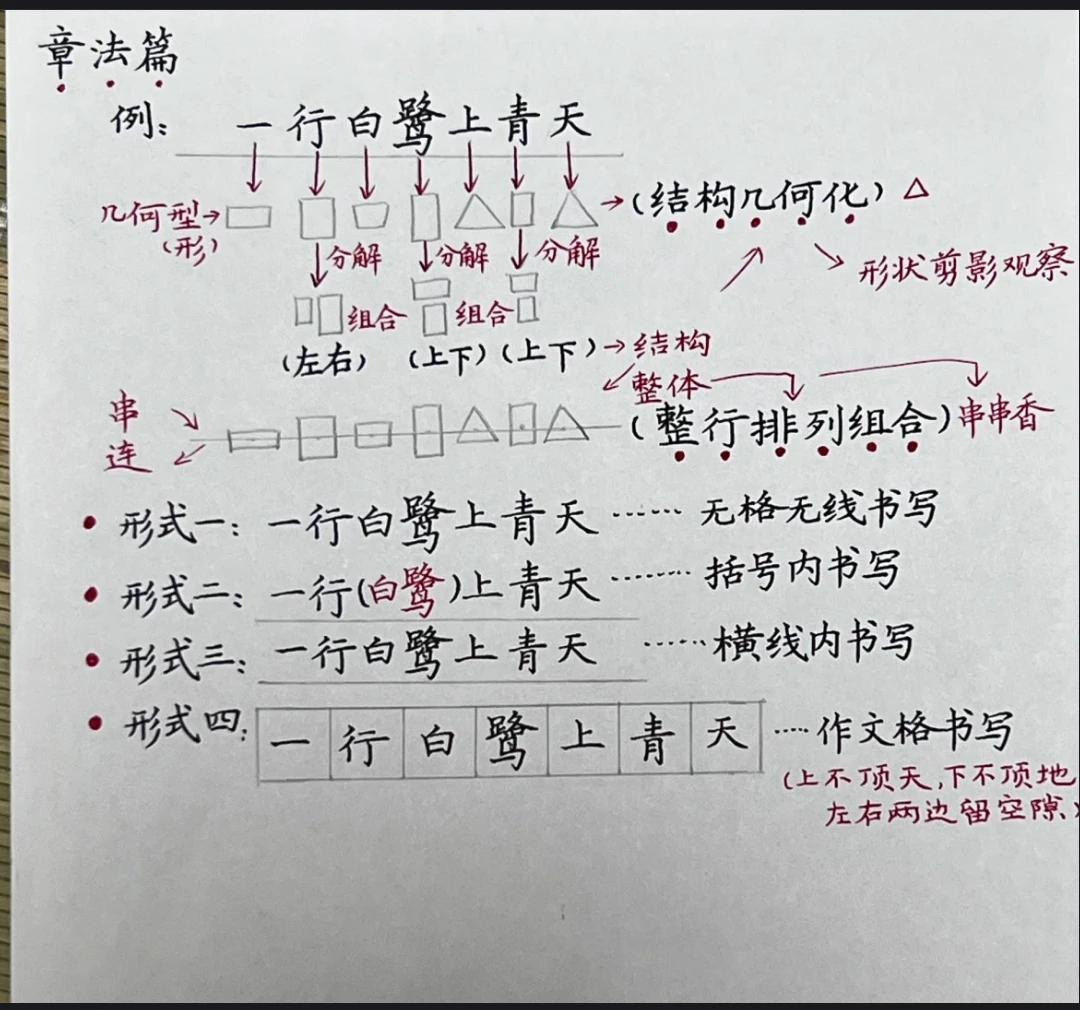 章法篇
例：一行白鹭上青天
几何型→
(形)
→(结构几何化)△
形状剪影观察
分解 分解 分解
组合 组合
(左右) (上下) (上下)→结构
整体
串连
(整行排列组合)串串香
形式一：一行白鹭上青天……无格无线书写
形式二：一行(白鹭)上青天……括号内书写
形式三：一行白鹭上青天……横线内书写
形式四：一行白鹭上青天……作文格书写
(上不顶天,下不顶地
左右两边留空隙)